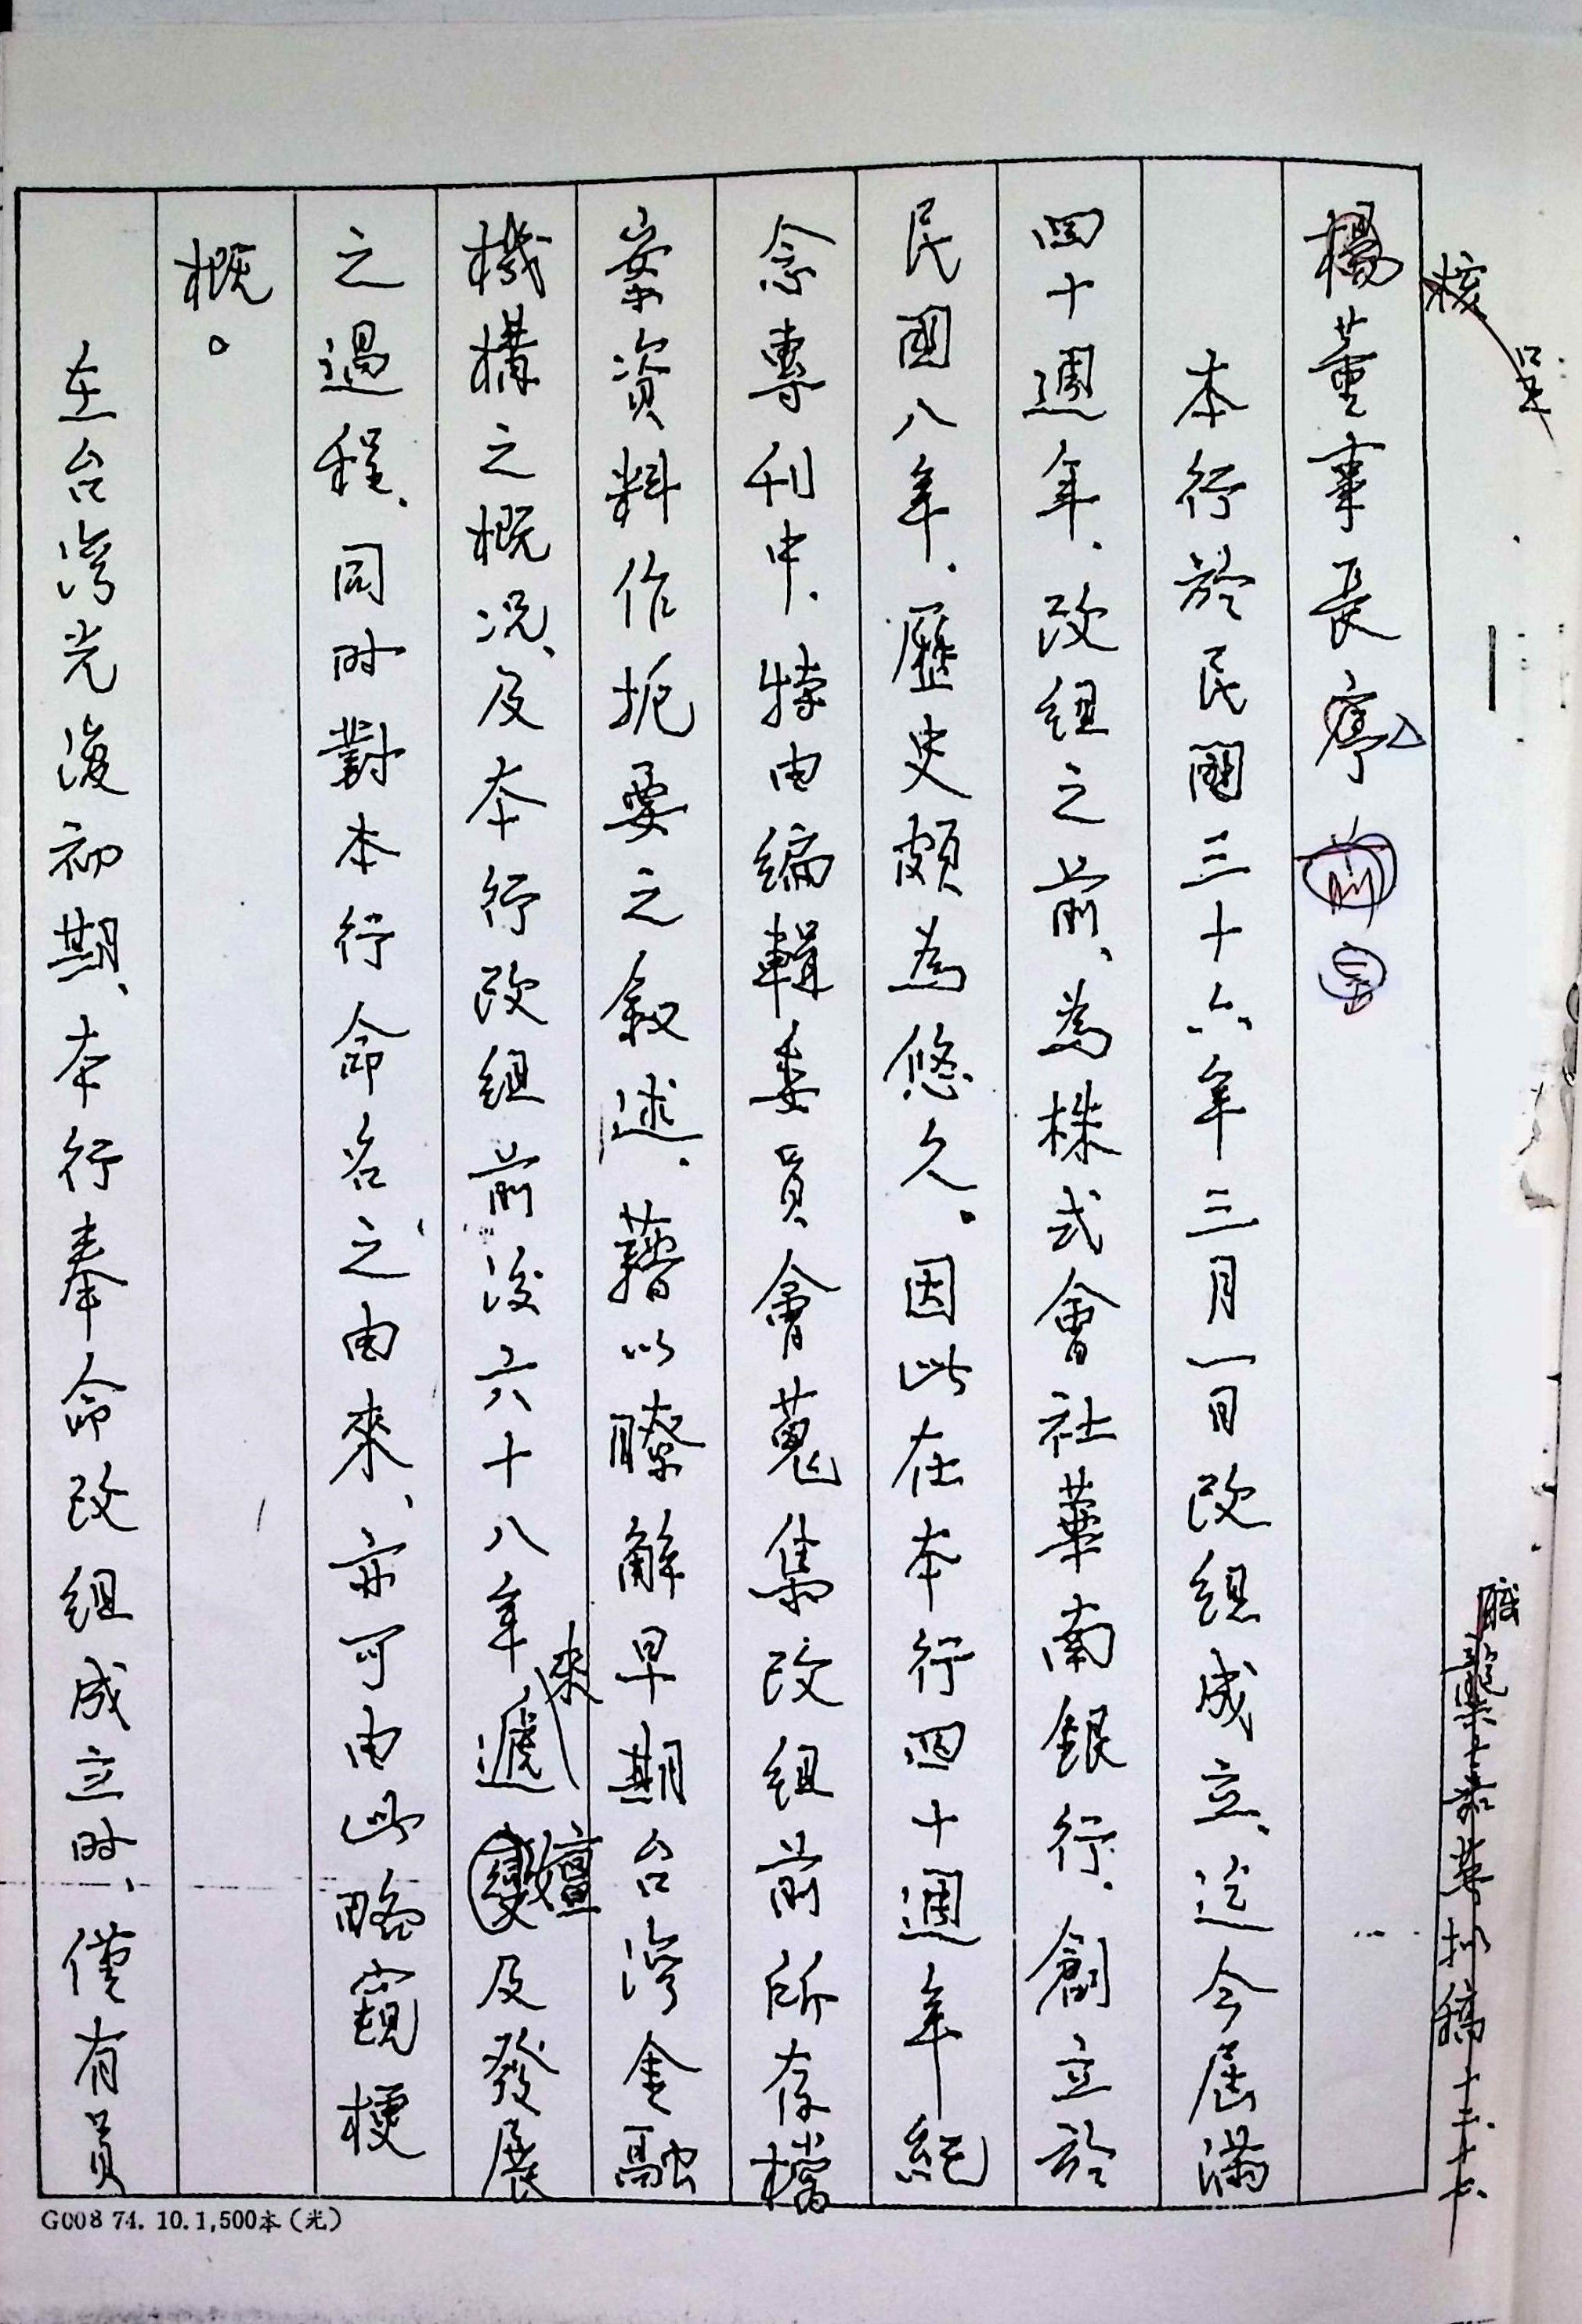 核
呈
楊董事長序
本行於民國三十六年三月一日改組成立、迄今屆滿
四十週年、改組之前、為株式會社華南銀行、創立於
民國八年、歷史頗為悠久。因此在本行四十週年紀
念專刊中、特由編輯委員會蒐集改組前所存檔
案資料作扼要之敘述、藉以瞭解早期台灣金融
機構之概況、及本行改組前後六十八年來遞嬗及發展
之過程、同时對本行命名之由來、亦可由此略窺梗
概。
在台灣光復初期、本行奉命改組成立时、僅有員
G008 74. 10. 1,500本（光）